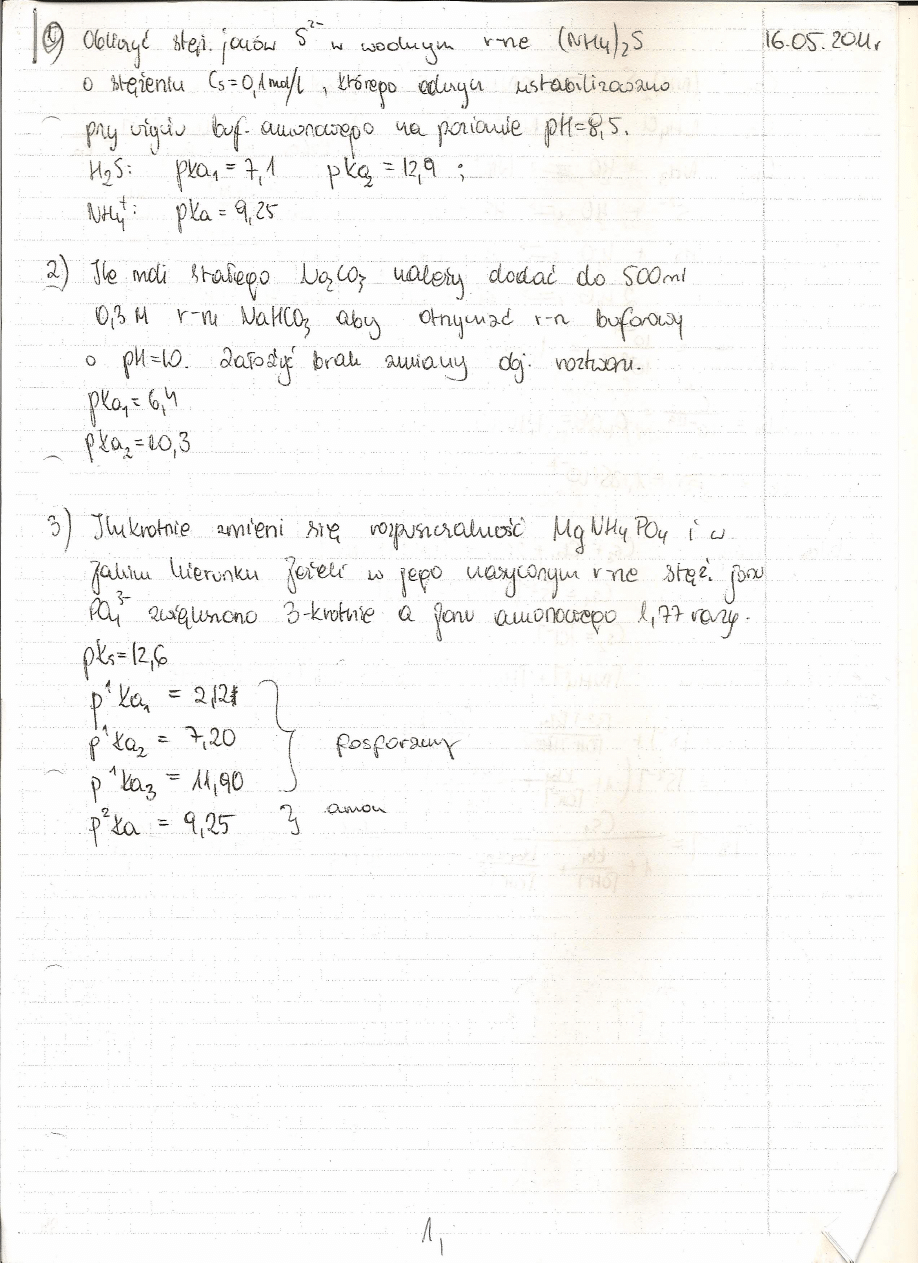 1) Obliczyć stęż. jonów S²⁻ w wodnym r-ne (NH₄)₂S 16.05.2011r
o stężeniu Cs=0,1mol/l, którego odczyn ustabilizowano
przy użyciu buf. amonowego na poziomie pH=8,5.
H₂S: pka₁=7,1 pka₂=12,9 ;
NH₄⁺: pKa=9,25
2) Ile moli stałego Na₂CO₃ należy dodać do 500ml
0,3M r-ru NaHCO₃ aby otrzymać r-n buforowy
o pH=10. Założyć brak zmiany obj. roztworu.
pKa₁=6,4
pKa₂=10,3
3) Ilukrotnie zmieni się rozpuszczalność MgNH₄PO₄ i w
jakim kierunku jeżeli w jego nasyconym r-ne stęż. jonu
PO₄³⁻ zwiększono 3-krotnie a jonu amonowego 1,77 razy.
pKs=12,6
p¹ka₁ = 2,12
p¹ka₂ = 7,20
p¹ka₃ = 11,90
fosforany
p²ka = 9,25 } amon
1,